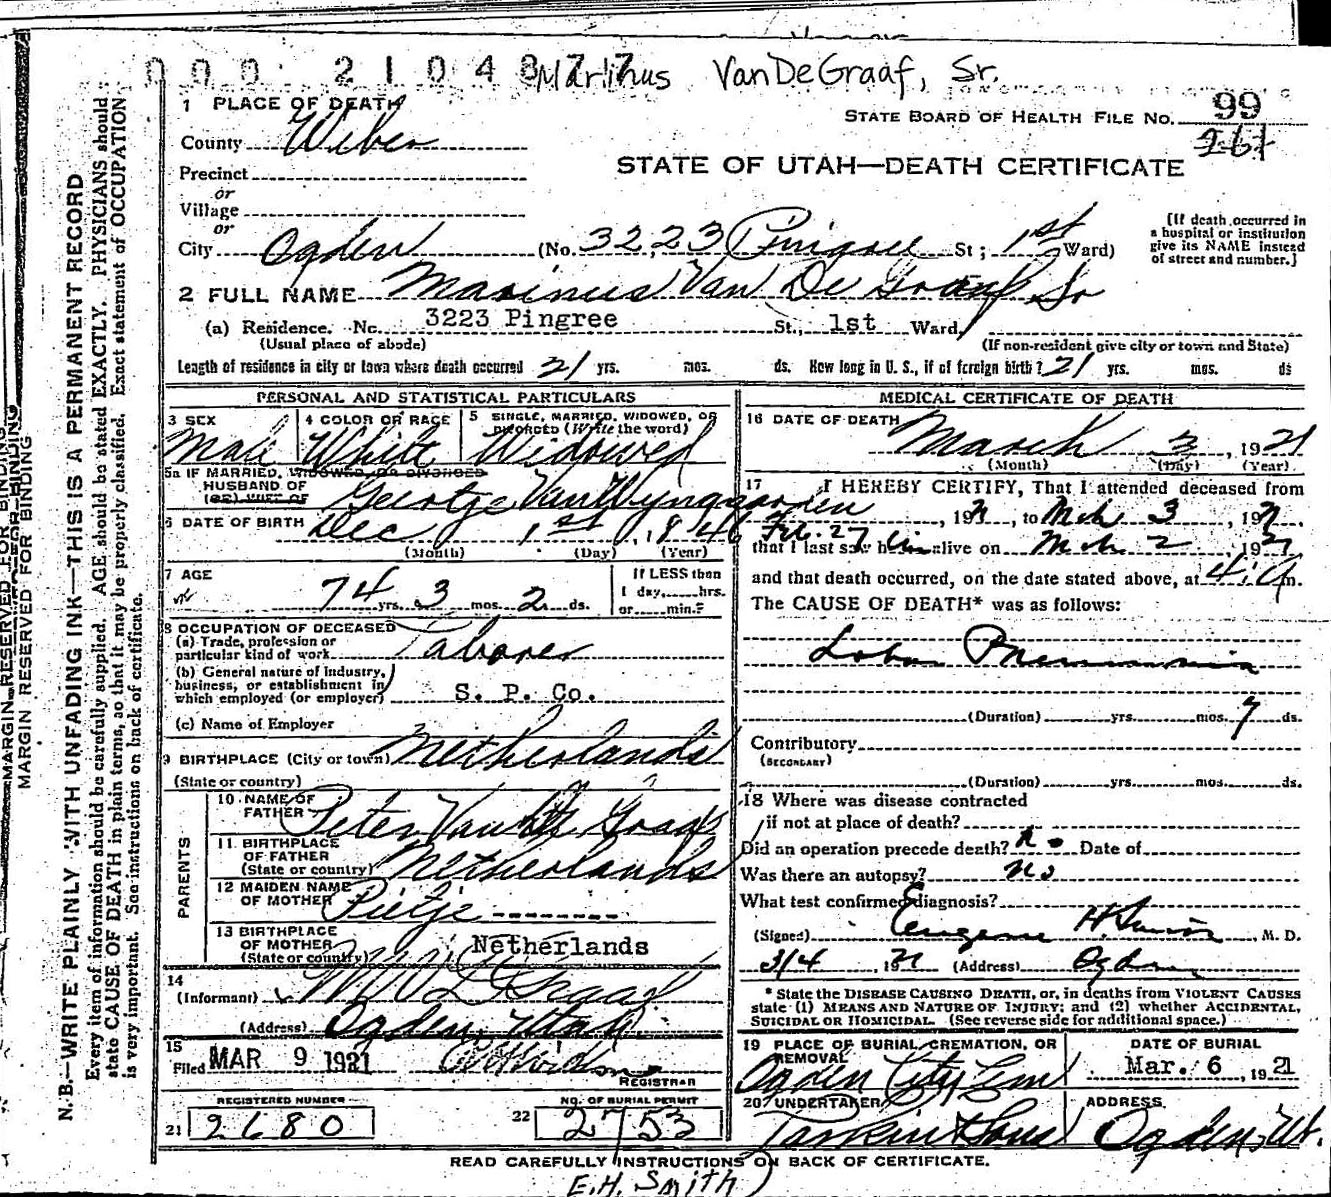 000 2104877 Marinus VanDeGraaf, Sr.
1 PLACE OF DEATH
STATE BOARD OF HEALTH FILE NO. 99
261
County Weber
STATE OF UTAH—DEATH CERTIFICATE
Precinct
or
Village
or
City Ogden (No. 3223 Pingree St; 1st Ward)
[If death occurred in
a hospital or institution
give its NAME instead
of street and number.]
2 FULL NAME Marinus Van De Graaf Sr
(a) Residence. No. 3223 Pingree St., 1st Ward,
(Usual place of abode) (If non-resident give city or town and State)
Length of residence in city or town where death occurred 21 yrs. mos. ds. How long in U. S., if of foreign birth? 21 yrs. mos. ds
PERSONAL AND STATISTICAL PARTICULARS
3 SEX Male
4 COLOR OR RACE White
5 SINGLE, MARRIED, WIDOWED, OR
DIVORCED (Write the word)
Widowed
5a IF MARRIED, WIDOWED, OR DIVORCED
HUSBAND OF
(OR) WIFE OF
Geertge Van Wyngaarden
6 DATE OF BIRTH Dec 1st, 1846
(Month) (Day) (Year)
7 AGE
74 yrs. 3 mos. 2 ds.
If LESS than
1 day, hrs.
or min.?
8 OCCUPATION OF DECEASED
(a) Trade, profession or
particular kind of work Laborer
(b) General nature of industry,
business, or establishment in
which employed (or employer) S. P. Co.
(c) Name of Employer
9 BIRTHPLACE (City or town) Netherlands
(State or country)
PARENTS
10 NAME OF
FATHER Peter Van De Graaf
11 BIRTHPLACE
OF FATHER
(State or country) Netherlands
12 MAIDEN NAME
OF MOTHER Pietje
13 BIRTHPLACE
OF MOTHER
(State or country) Netherlands
14
(Informant) M V D Graaf
(Address) Ogden, Utah
15
Filed MAR 9 1921
REGISTRAR
REGISTERED NUMBER
21 2680
NO. OF BURIAL PERMIT
22 2753
MEDICAL CERTIFICATE OF DEATH
16 DATE OF DEATH
March 3, 1921
(Month) (Day) (Year)
17 I HEREBY CERTIFY, That I attended deceased from
Feb. 27, 1921, to Mch 3, 1921,
that I last saw him alive on Mch 2, 1921
and that death occurred, on the date stated above, at 4 a m.
The CAUSE OF DEATH* was as follows:
Lobar Pneumonia
(Duration) yrs. mos. 7 ds.
Contributory
(SECONDARY)
(Duration) yrs. mos. ds.
18 Where was disease contracted
if not at place of death?
Did an operation precede death? No Date of
Was there an autopsy? No
What test confirmed diagnosis?
(Signed) Eugene H. Smith, M. D.
3/4 1921 (Address) Ogden
* State the DISEASE CAUSING DEATH, or, in deaths from VIOLENT CAUSES
state (1) MEANS AND NATURE OF INJURY; and (2) whether ACCIDENTAL,
SUICIDAL OR HOMICIDAL. (See reverse side for additional space.)
19 PLACE OF BURIAL, CREMATION, OR
REMOVAL
Ogden City Cem
DATE OF BURIAL
Mar. 6, 1921
20 UNDERTAKER
Larkin & Sons
ADDRESS
Ogden, Ut.
READ CAREFULLY INSTRUCTIONS ON BACK OF CERTIFICATE.
E.H. Smith
MARGIN RESERVED FOR BINDING
MARGIN RESERVED FOR BINDING
N.B.—WRITE PLAINLY WITH UNFADING INK—THIS IS A PERMANENT RECORD
Every item of information should be carefully supplied. AGE should be stated EXACTLY. PHYSICIANS should
state CAUSE OF DEATH in plain terms, so that it may be properly classified. Exact statement of OCCUPATION
is very important. See instructions on back of certificate.